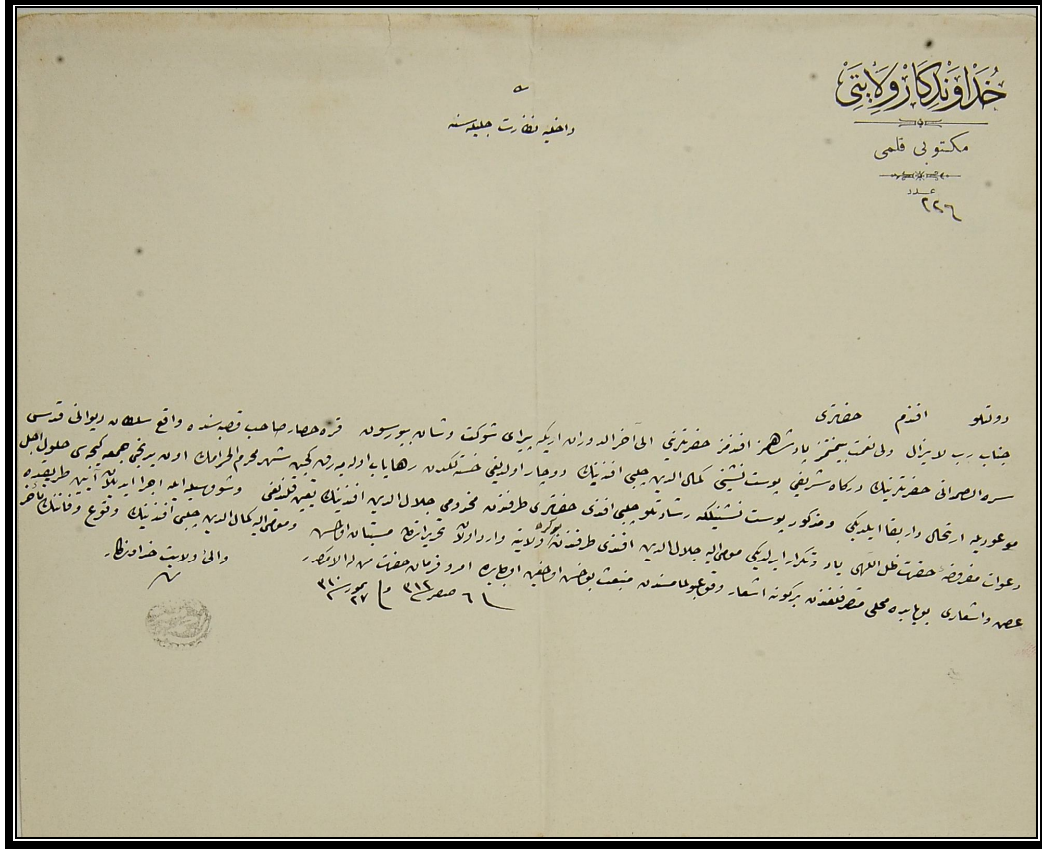 خداوندكار ولايتى
مكتوبى قلمى
عدد
٢٢٦
داخليه نظارت جليله سنه
دولتلو افندم حضرتلرى
جناب رب لا يزال ولى نعمت بيمنتمز پادشاهمز افندمز حضرتلرينى الى آخر الدوران اريكه پيراى شوكت وشان بيورسون قره حصار صاحب قصبه سنده واقع سلطان ديوانى قدس
سره الصمدانى حضرتلرينك دركاه شريفى پوست نشينى كمال الدين چلبى افندينك دوچار اولديغى خسته لكدن رهاياب اوله ميه رق كچن شهر محرم الحرامك اون برنجى جمعه كيجه سى حلول اجل
موعوديله ارتحال دار بقا ايلديكى ومذكور پوست نشينلكه رشادتلو چلبى افندى حضرتلرى طرفندن مخدومى جلال الدين افندينك تعيين قلنديغى اجرا ايديلان آيين طريقتده
دعوات مفروضه حضرت ظل اللهى ياد وتكرار ايدلديكى مومى اليه جلال الدين افندى طرفندن ولايته وارد اولان تحريراتده ومومى اليه كمال الدين چلبى افندينك وقوع وفاتنك تأخر
عرض واشعارى بوبابده محلى متصرفلغندن بركونه اشعار وقوعبولمامسندن منبعث بولنمش اولمغين اولبابده امر وفرمان حضرت من له الامركدر
فى ٦ صفر ٣١٢ وفى ٢٧ تموز ٣١٠
والئ ولايت خداوندكار